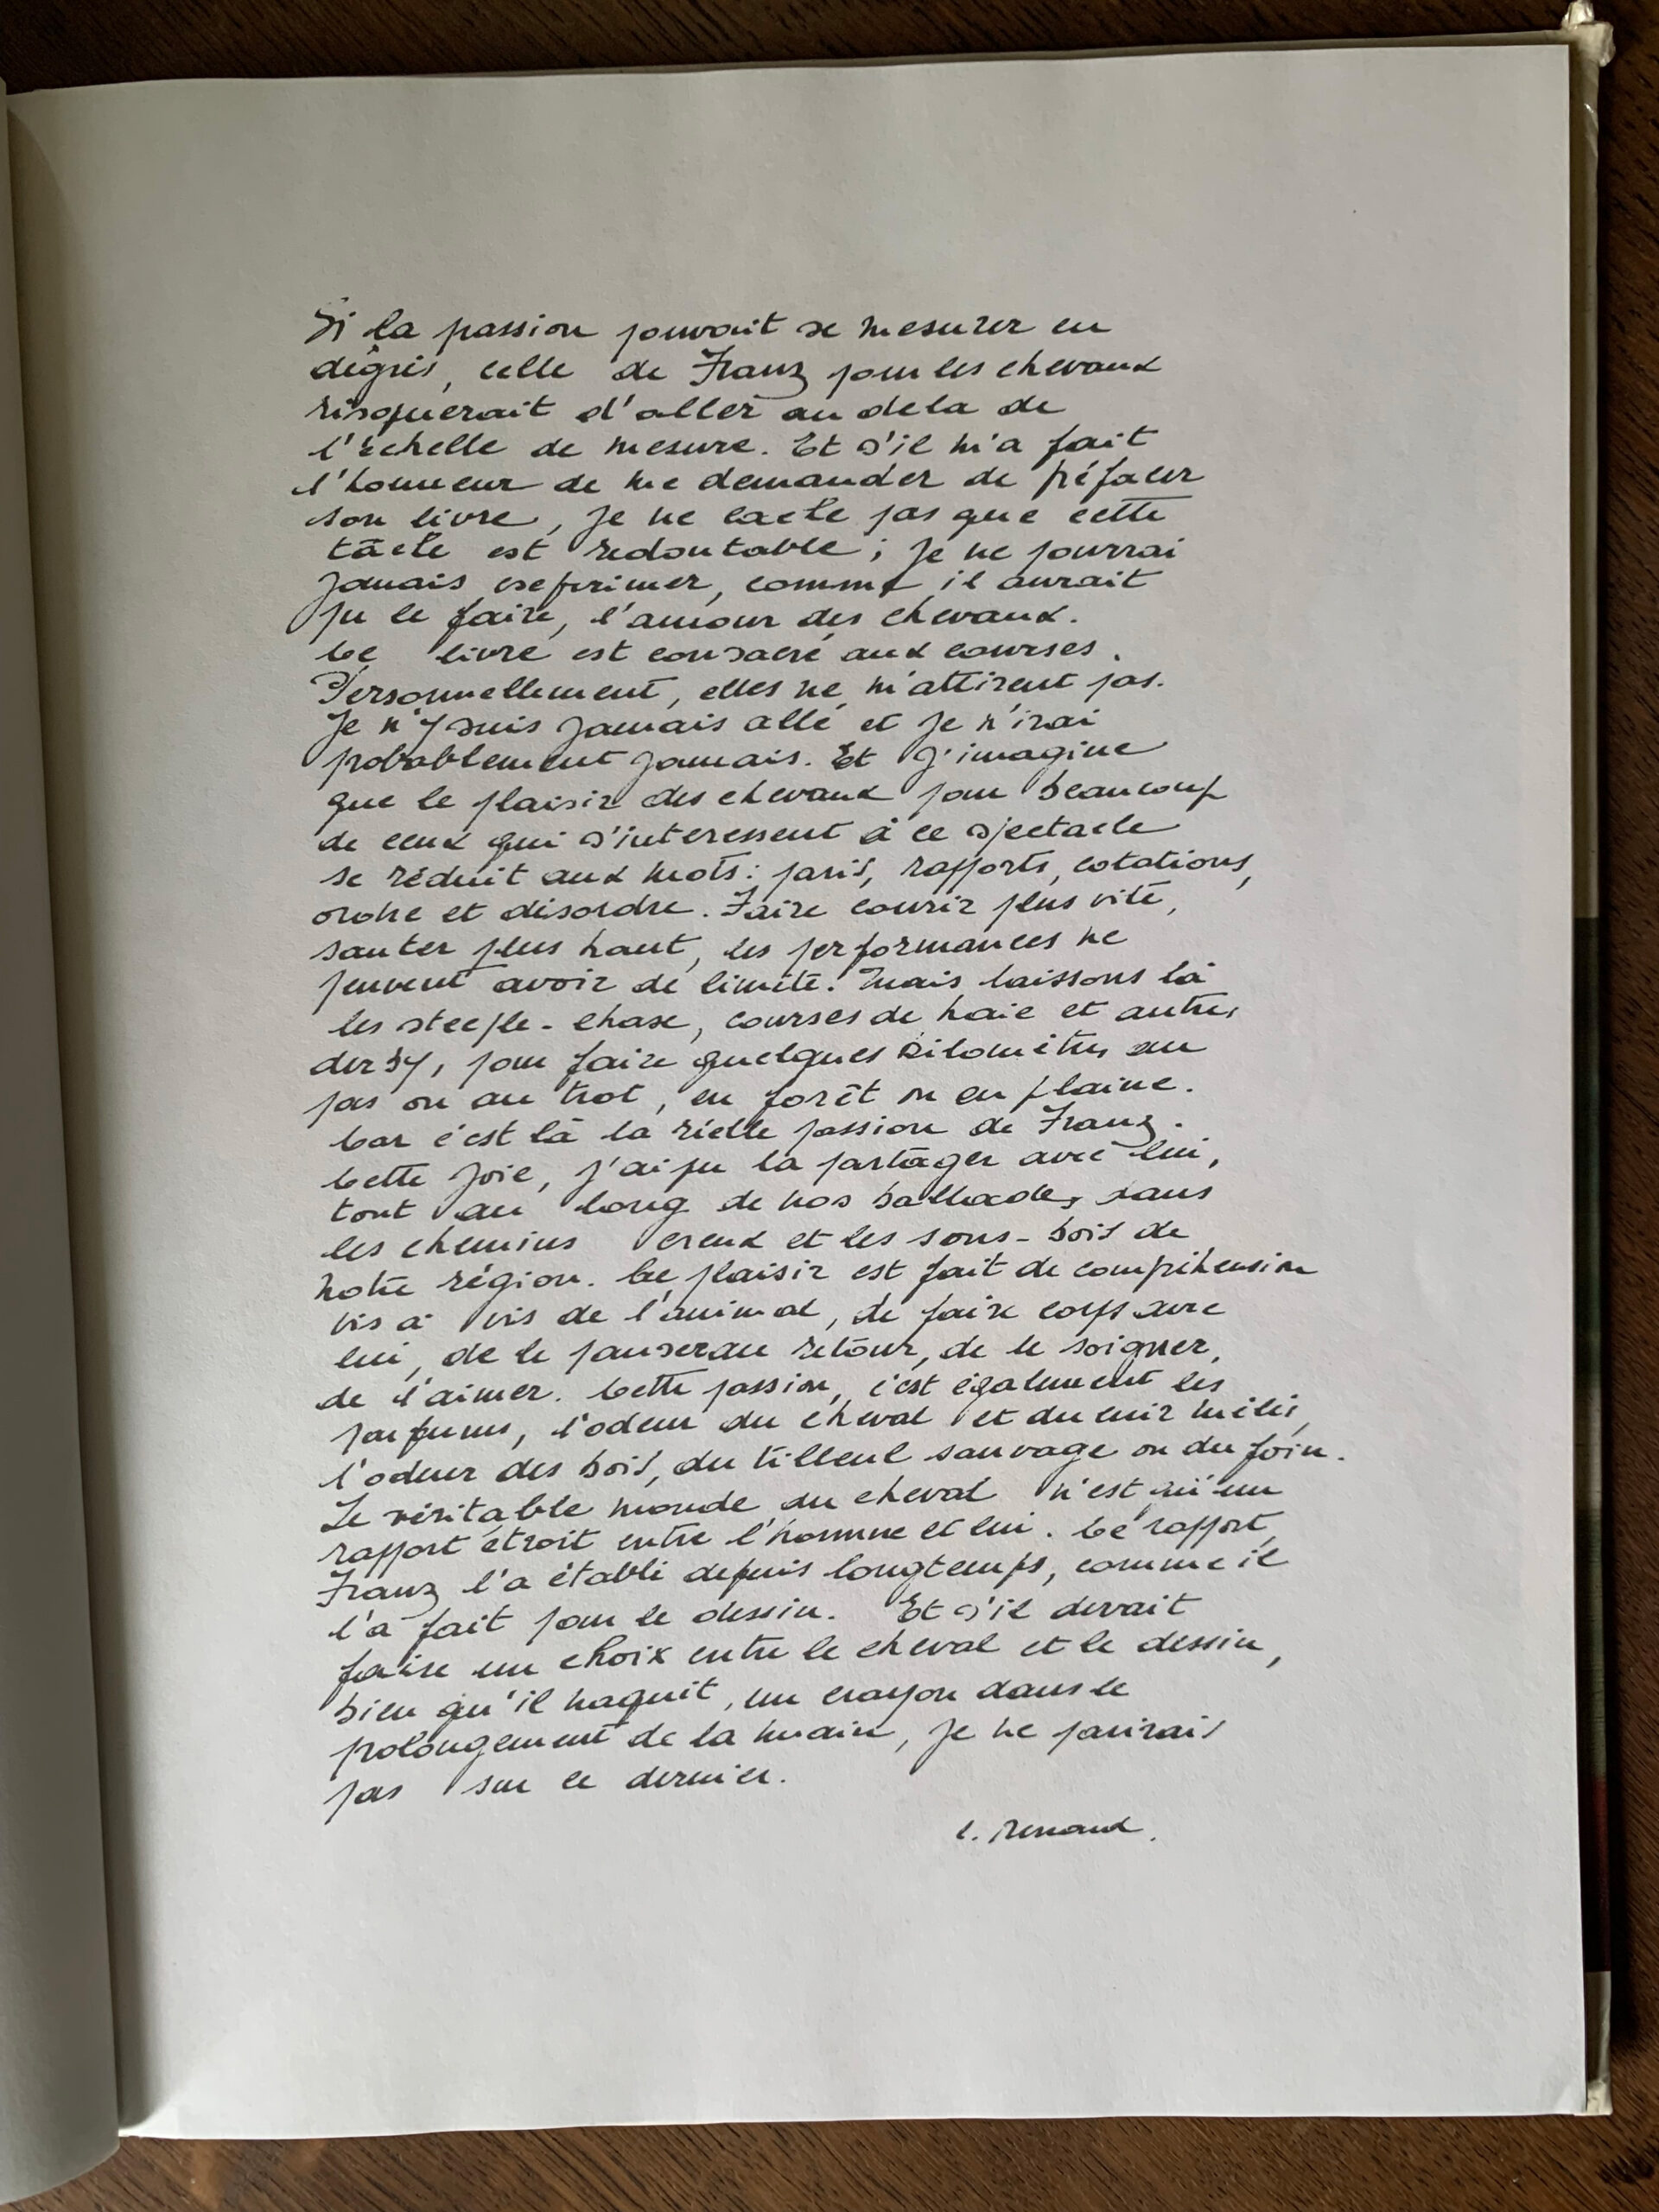 Si la passion pouvait se mesurer en
degrés, celle de Franz pour les chevaux
risquerait d'aller au dela de
l'échelle de mesure. Et s'il m'a fait
l'honneur de me demander de préfacer
son livre, je ne cache pas que cette
tâche est redoutable ; je ne pourrai
jamais exprimer, comme il aurait
pu le faire, l'amour des chevaux.
Ce livre est consacré aux courses.
Personnellement, elles ne m'attirent pas.
Je n'y suis jamais allé et je n'irai
probablement jamais. Et j'imagine
que le plaisir des chevaux pour beaucoup
de ceux qui s'interessent à ce spectacle
se réduit aux mots : paris, rapports, cotations,
ordre et désordre. Faire courir plus vite,
sauter plus haut, les performances ne
peuvent avoir de limite ! Mais laissons là
les steeple-chase, courses de haie et autres
derby, pour faire quelques kilomètres au
pas ou au trot, en forêt ou en plaine.
Car c'est là la réelle passion de Franz.
Cette joie, j'ai pu la partager avec lui,
tout au long de nos ballades dans
les chemins creux et les sous-bois de
notre région. Ce plaisir est fait de compréhension
vis à vis de l'animal, de faire corps avec
lui, de le panser au retour, de le soigner,
de l'aimer. Cette passion, c'est également les
parfums, l'odeur du cheval et du cuir mêlés,
l'odeur des bois, du tilleul sauvage ou du foin.
Le véritable monde du cheval n'est qu'un
rapport étroit entre l'homme et lui. Ce rapport,
Franz l'a établi depuis longtemps, comme il
l'a fait pour le dessin. Et s'il devait
faire un choix entre le cheval et le dessin,
bien qu'il naquit, un crayon dans le
prolongement de la main, je ne parirais
pas sur ce dernier.